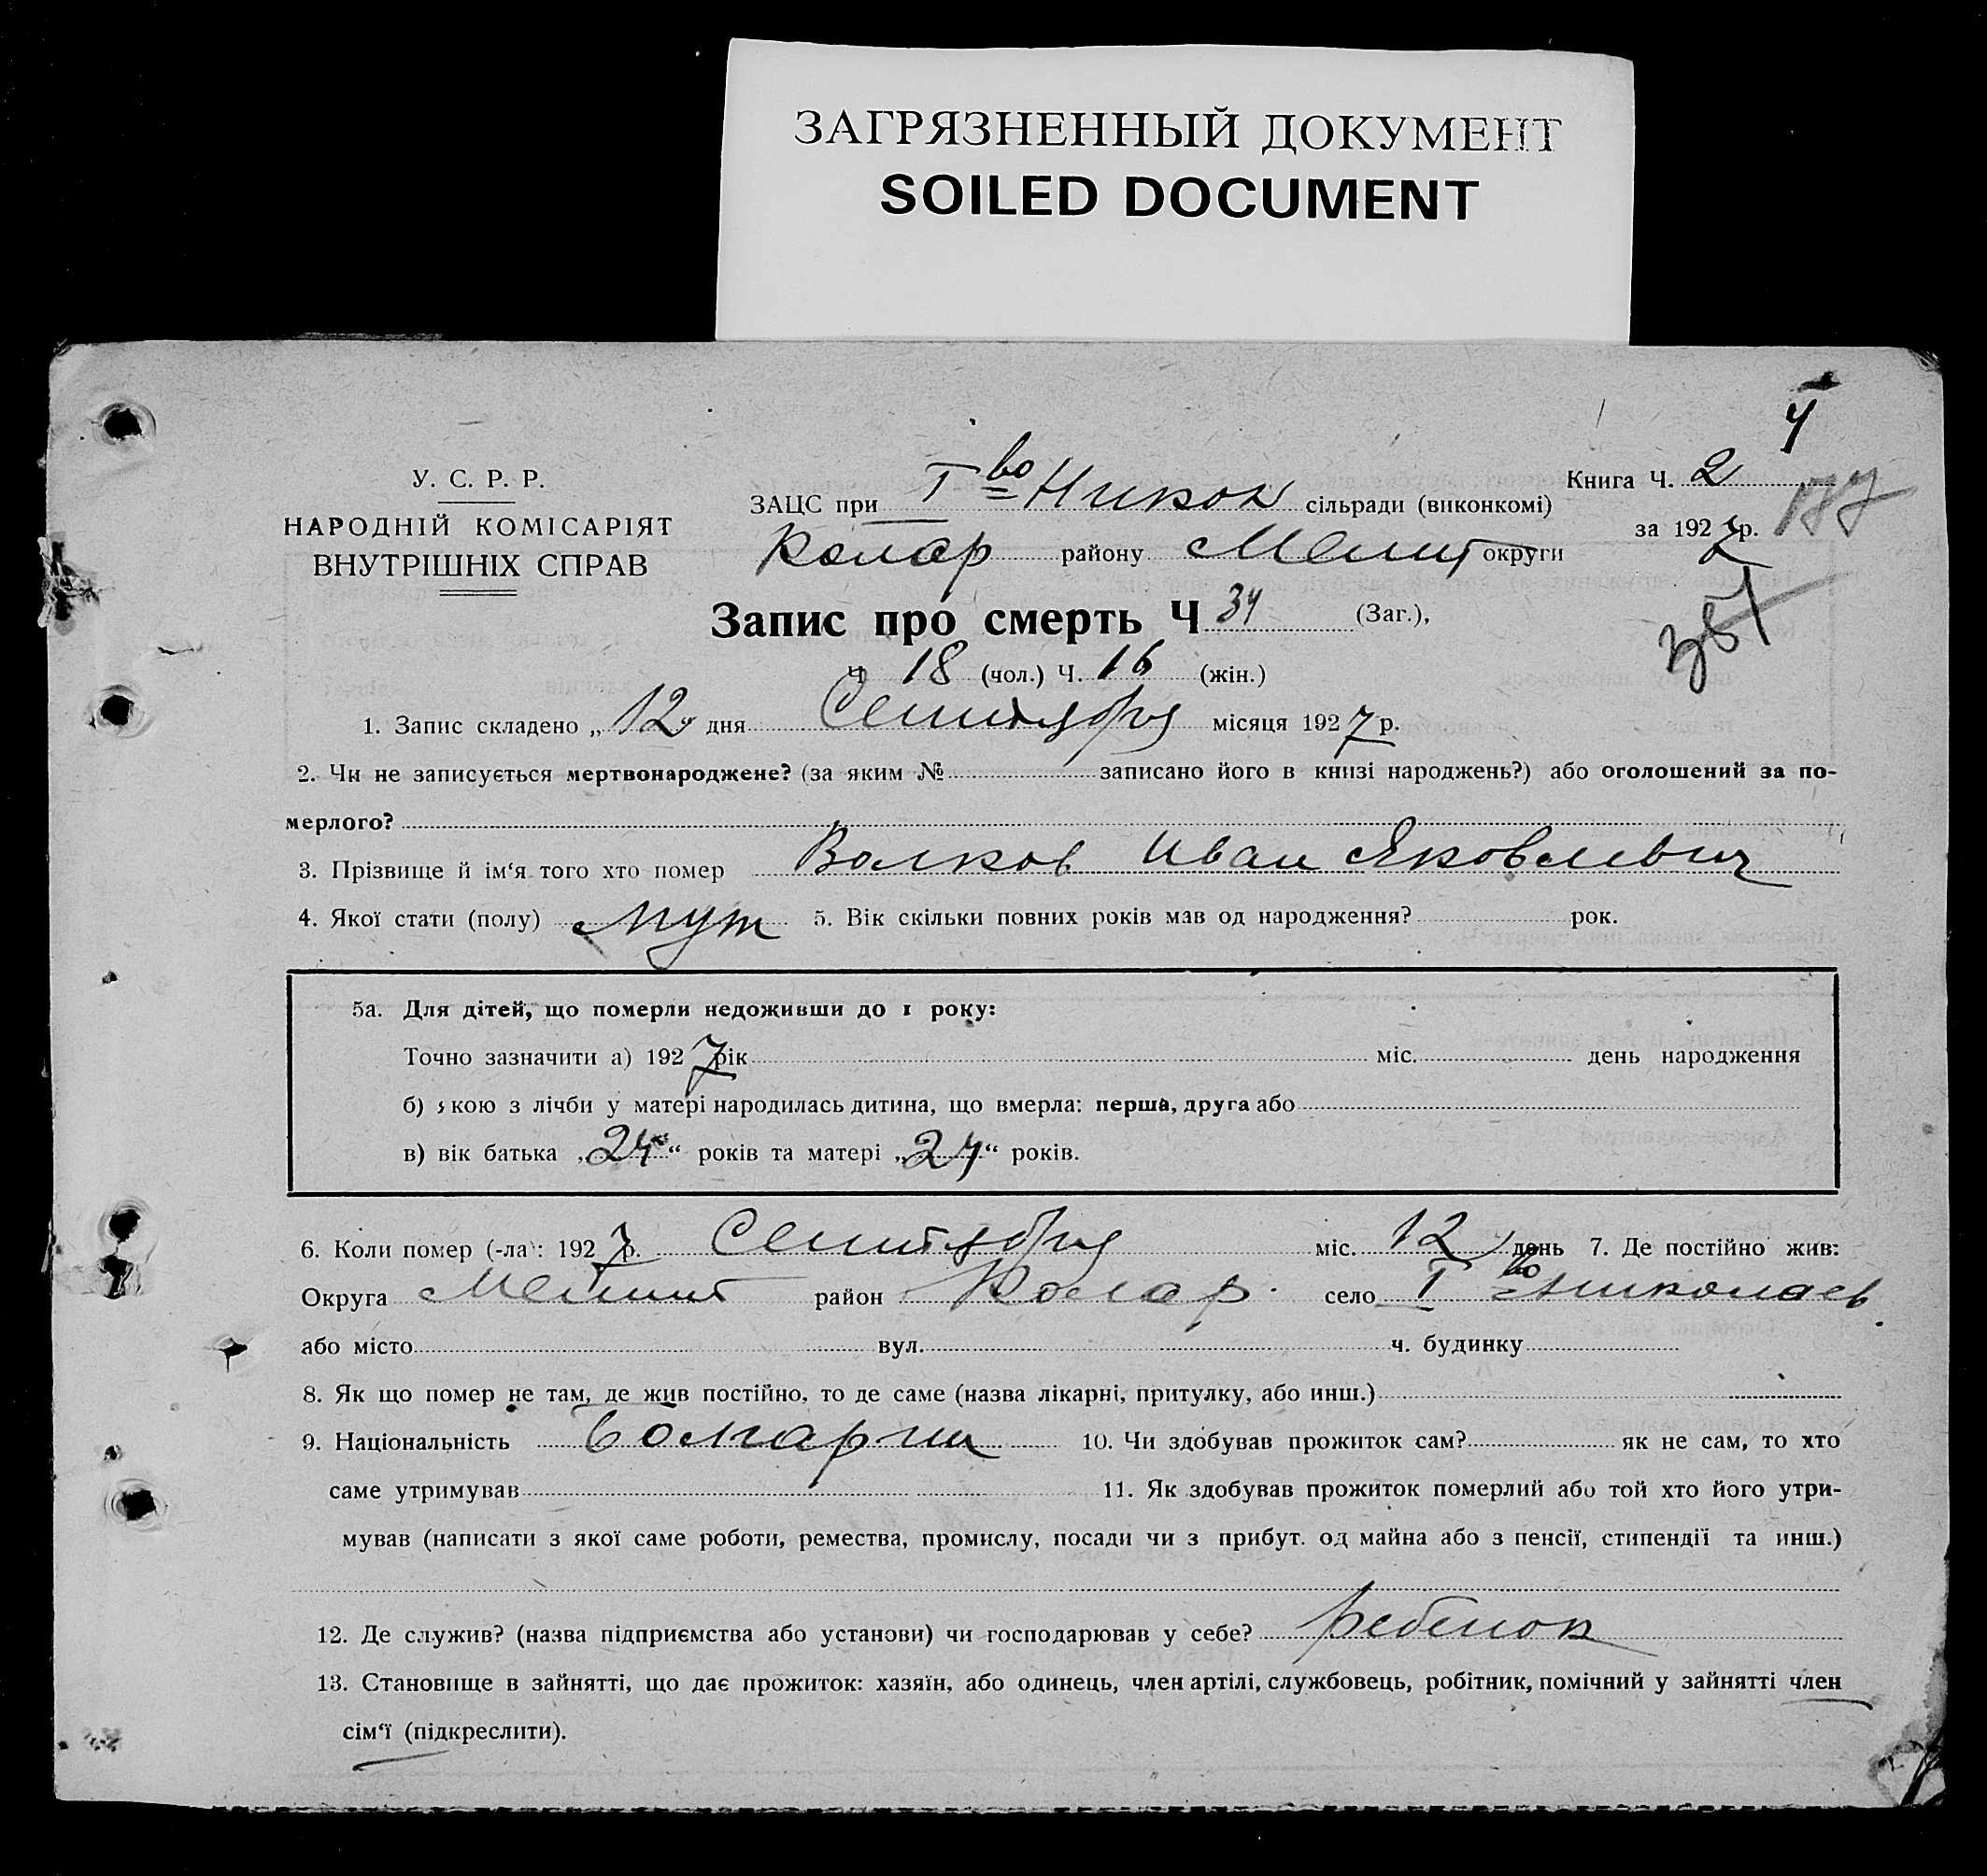 ЗАГРЯЗНЕННЫЙ ДОКУМЕНТ
SOILED DOCUMENT
4
У. С. Р. Р.
НАРОДНІЙ КОМІСАРІЯТ
ВНУТРІШНІХ СПРАВ
ЗАЦС при Iво Никол сільради (виконкомі)
Книга Ч. 2
Колар району Мелит округи
за 1927 р.
Запис про смерть Ч 34 (Заг.),
Ч 18 (чол.) Ч. 16 (жін.)
1. Запис складено „ 12 дня Сентября місяця 1927 р.
2. Чи не записується мертвонароджене? (за яким № записано його в книзі народжень?) або оголошений за по-
мерлого?
3. Прізвище й ім‘я того хто помер Волков Иван Яковлевич
4. Якої стати (полу) муж 5. Вік скільки повних років мав од народження? рок.
5а. Для дітей, що померли недоживши до 1 року:
Точно зазначити а) 1927 рік міс. день народження
б) якою з лічби у матері народилась дитина, що вмерла: перша, друга або
в) вік батька „24“ років та матері „24“ років.
6. Коли помер (-ла): 1927 р. Сентября міс. 12 день 7. Де постійно жив:
Округа Мелит район Колар. село Iво Николаев.
або місто вул. ч. будинку
8. Як що помер не там, де жив постійно, то де саме (назва лікарні, притулку, або инш.)
9. Національність болгарин 10. Чи здобував прожиток сам? як не сам, то хто
саме утримував 11. Як здобував прожиток померлий або той хто його утри-
мував (написати з якої саме роботи, ремества, промислу, посади чи з прибут. од майна або з пенсії, стипендії та инш.)
12. Де служив? (назва підприємства або установи) чи господарював у себе? ребенок
13. Становище в зайнятті, що дає прожиток: хазяїн, або одинець, член артілі, службовець, робітник, помічний у зайнятті член
сім‘ї (підкреслити).